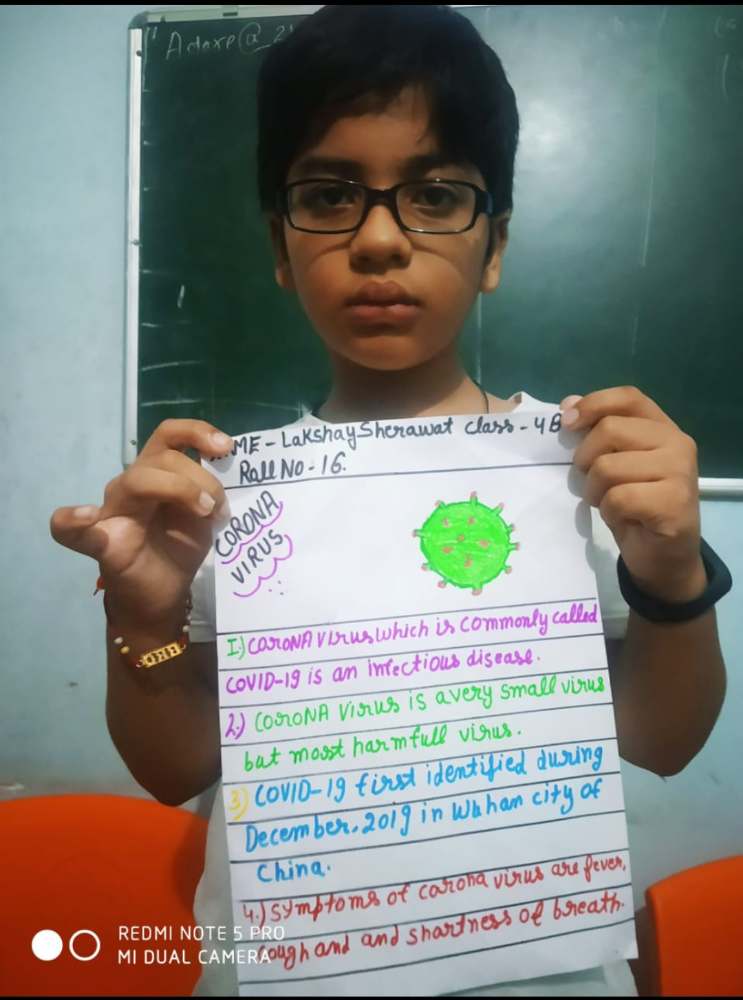 Adarp@_21
ME - Lakshay Sherawat Class - 4B
Roll No - 16.
CORONA
VIRUS
1.) CoroNA Virus which is commonly called
COVID-19 is an infectious disease.
2.) CoroNA Virus is a very small virus
but most harmfull virus.
3) COVID-19 first identified during
December, 2019 in Wuhan city of
China.
4.) Symptoms of carona virus are fever,
cough and and shartness of breath.
REDMI NOTE 5 PRO
MI DUAL CAMERA